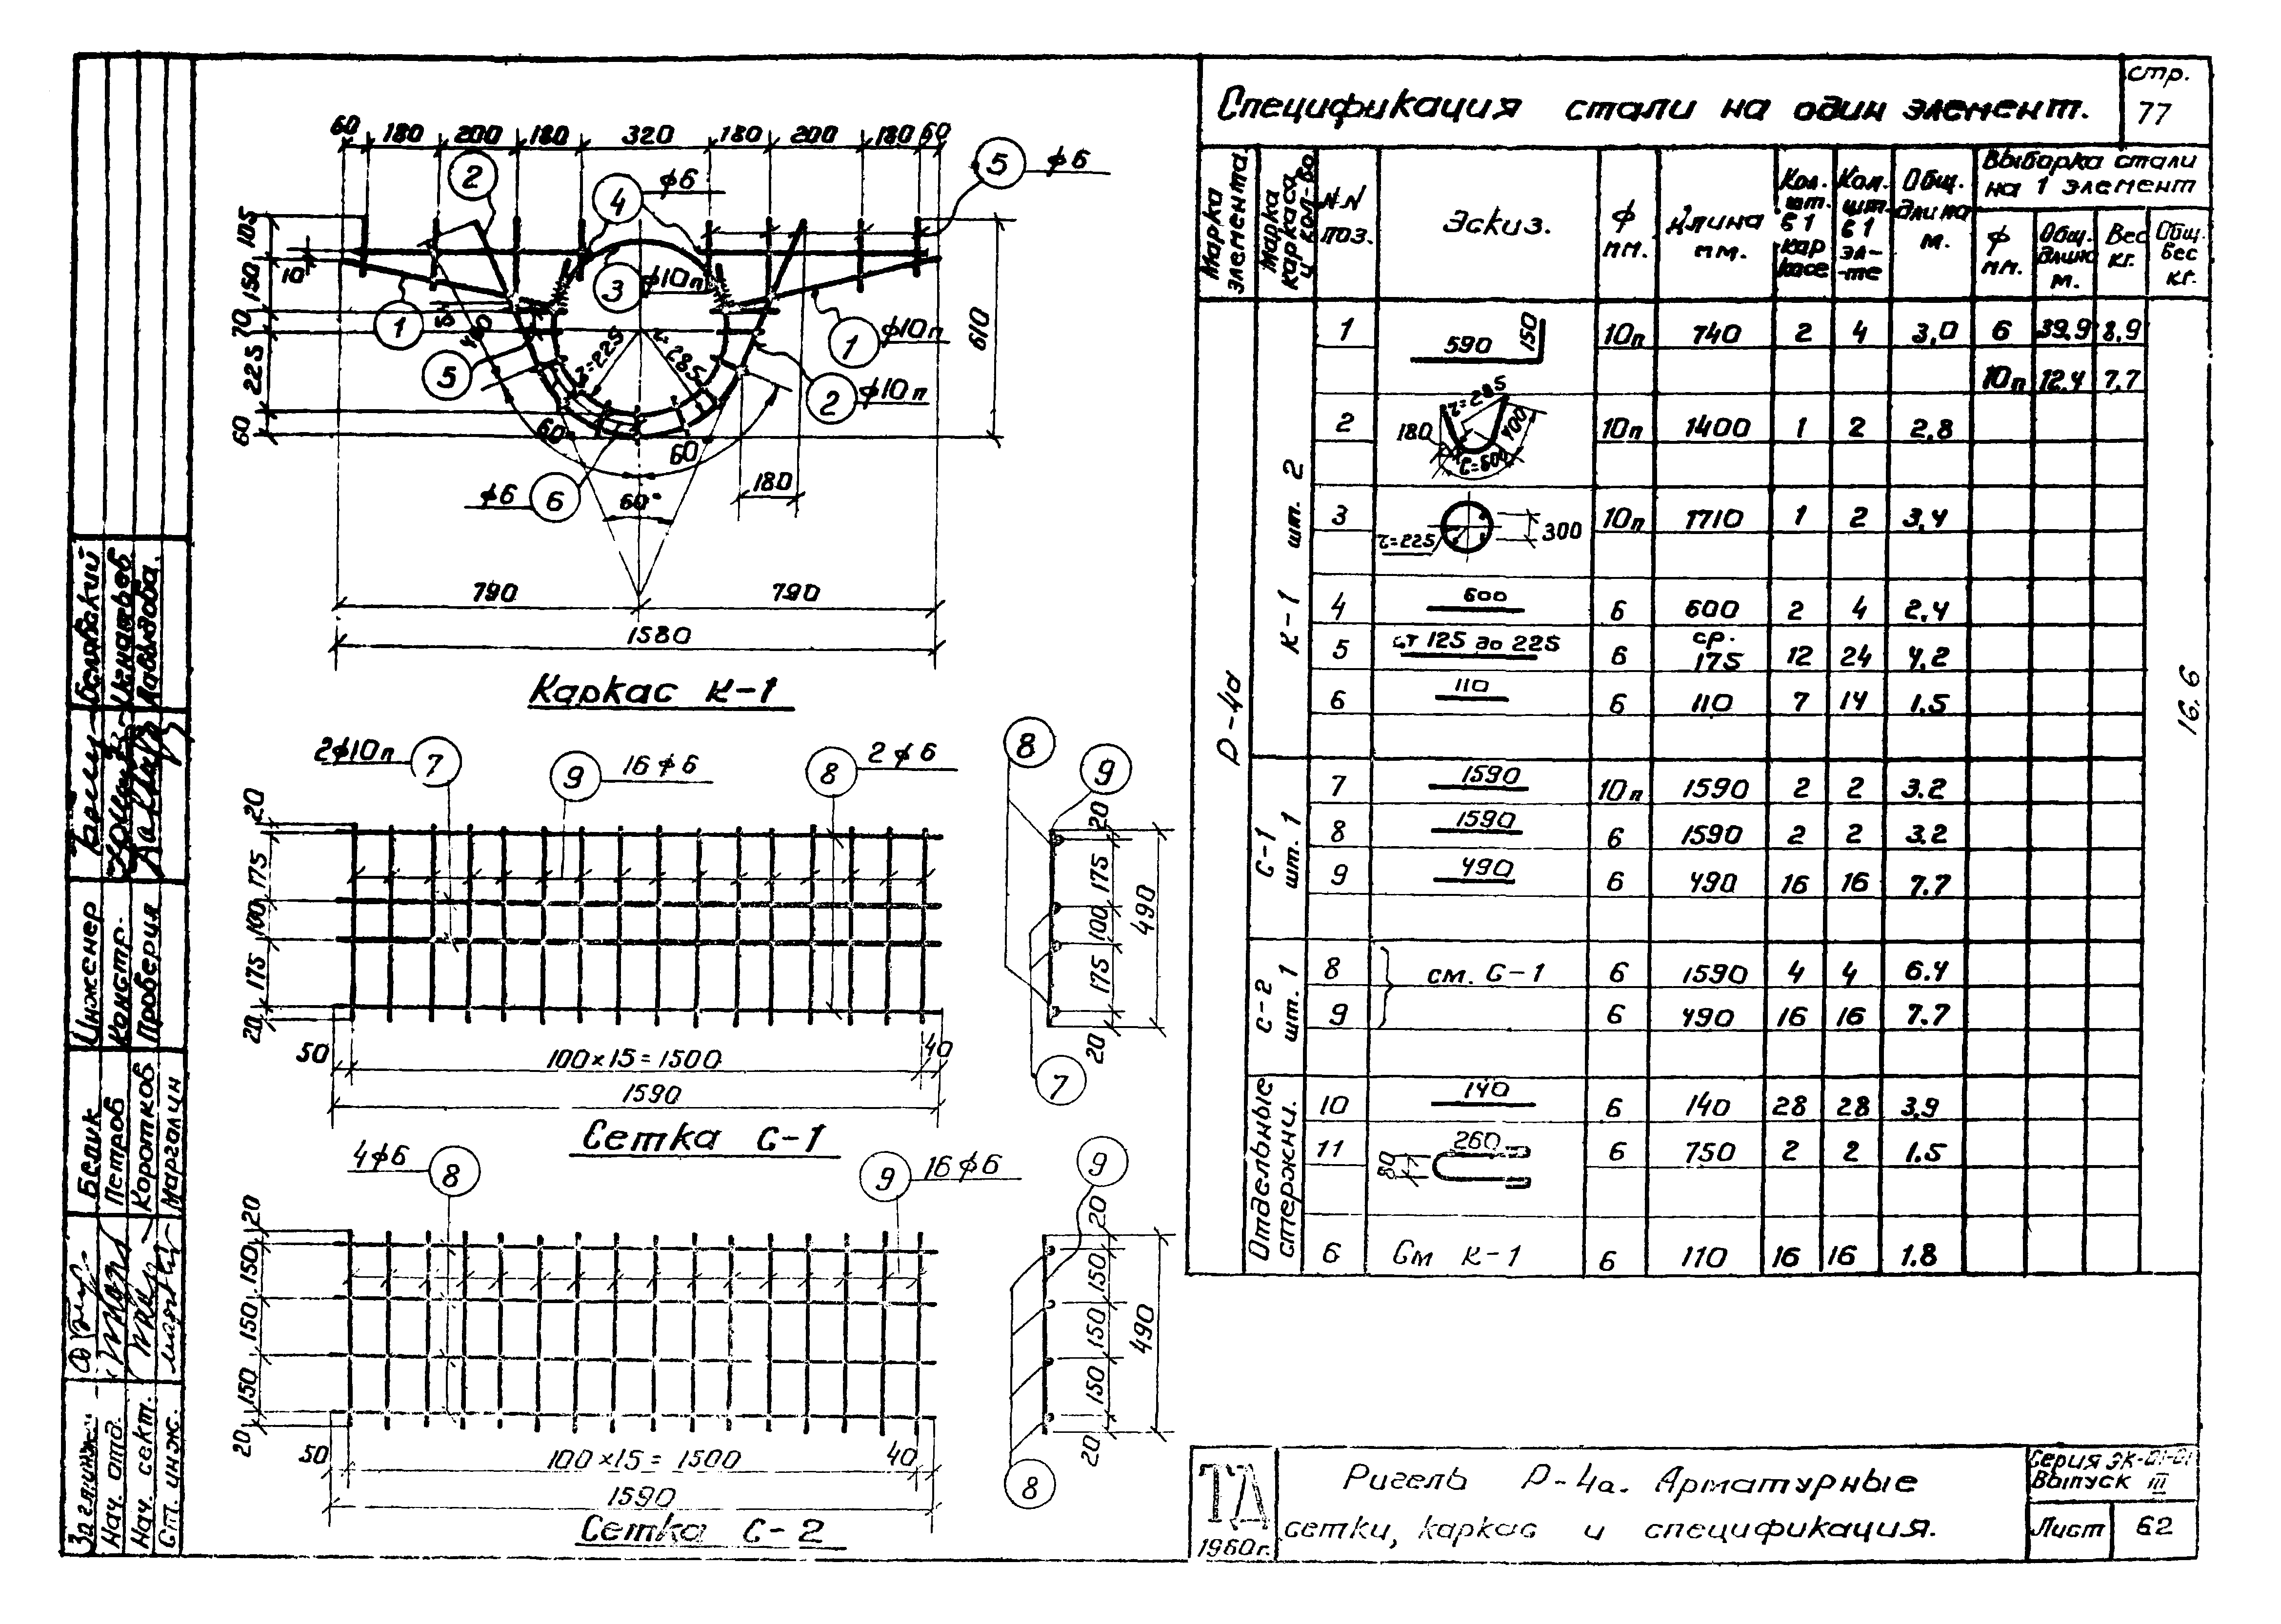 Спецификация стали на один элемент.
стр.
77
Марка элемента
Марка каркаса и кол-во
NN поз.
Эскиз.
ф мм.
Длина мм.
Кол. шт. в 1 каркасе
Кол. шт. в 1 эл-те
Общ. длина м.
Выборка стали на 1 элемент
ф мм.
Общ. длина м.
Вес кг.
Общ. вес кг.
Р-4а
К-1 шт. 2
1 590 150 10п 740 2 4 3,0 6 39.9 8,9
10п 12.4 7.7
2 180 400 10п 1400 1 2 2,8
3 r=225 300 10п 1710 1 2 3,4
4 600 6 600 2 4 2.4
5 от 125 до 225 6 ср. 175 12 24 4.2
6 110 6 110 7 14 1.5
16.6
С-1 шт. 1
7 1590 10п 1590 2 2 3.2
8 1590 6 1590 2 2 3.2
9 490 6 490 16 16 7.7
С-2 шт. 1
8 см. С-1 6 1590 4 4 6.4
9 6 490 16 16 7.7
Отдельные стержни.
10 140 6 140 28 28 3.9
11 260 80 6 750 2 2 1.5
6 См К-1 6 110 16 16 1.8
60 180 200 180 320 180 200 180 60
2
4 ф6
5 ф6
105
10
150
70
225
60
1
3 ф10п
1 ф10п
5
r=225
r=285
2 ф10п
610
60
60
ф6 6
60°
180
790 790
1580
Каркас К-1
2ф10п 7
9 16ф6
8 2ф6
8
9
20
175
100
175
20
20
175
100
175
20
490
50
100×15=1500
40
1590
7
Сетка С-1
4ф6 8
9 16ф6
9
20
150
150
150
20
20
150
150
150
20
490
50
100×15=1500
40
1590
8
Сетка С-2
Инженер
Констр.
Проверил
Белик
Петров
Коротков
Маргалин
Нач. отд.
Нач. сект.
Ст. инж.
ТД
1960г.
Ригель Р-4а. Арматурные
сетки, каркас и спецификация.
Серия ЭК-01-01
Выпуск III
Лист 62